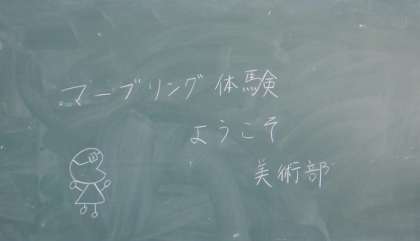 マーブリング体験
ようこそ
美術部